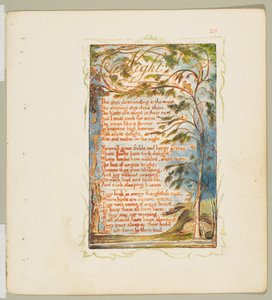 20
Night
The sun descending in the west.
The evening star does shine.
The birds are silent in their nest,
And I must seek for mine,
The moon like a flower,
In heavens high bower;
With silent delight,
Sits and smiles on the night.
Farewell green fields and happy groves,
Where flocks have took delight;
Where lambs have nibbled, silent moves
The feet of angels bright;
Unseen they pour blessing,
And joy without ceasing,
On each bud and blossom,
And each sleeping bosom.
They look in every thoughtless nest,
Where birds are coverd warm;
They visit caves of every beast,
To keep them all from harm;
If they see any weeping,
That should have been sleeping
They pour sleep on their head
And sit down by their bed.